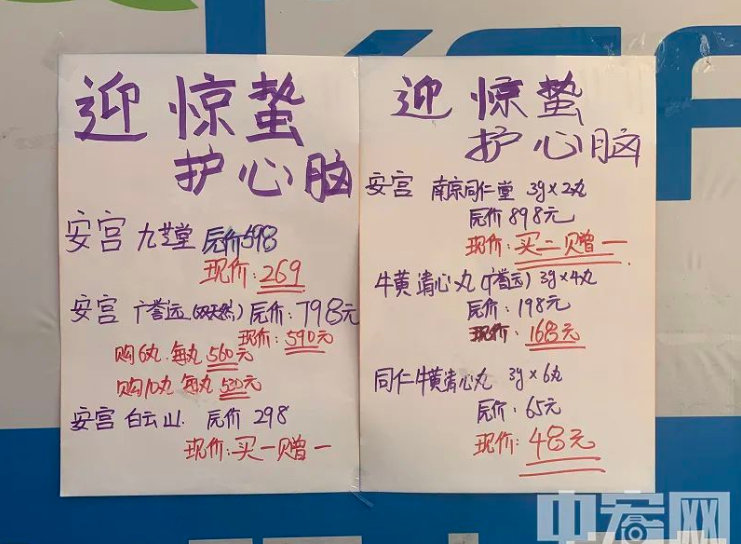 迎 惊蛰
护心脑
安宫 九芝堂 原价598
现价:269
安宫 广誉远(双天然) 原价:798元
现价:590元
购6丸 每丸 560元
购10丸 每丸 520元
安宫 白云山 原价 298
现价:买一赠一
迎 惊蛰
护心脑
安宫 南京同仁堂 3g×2丸
原价898元
现价:买二赠一
牛黄清心丸(广誉远)3g×4丸
原价:198元
现价:168元
同仁牛黄清心丸 3g×6丸
原价:65元
现价:48元
中宏网